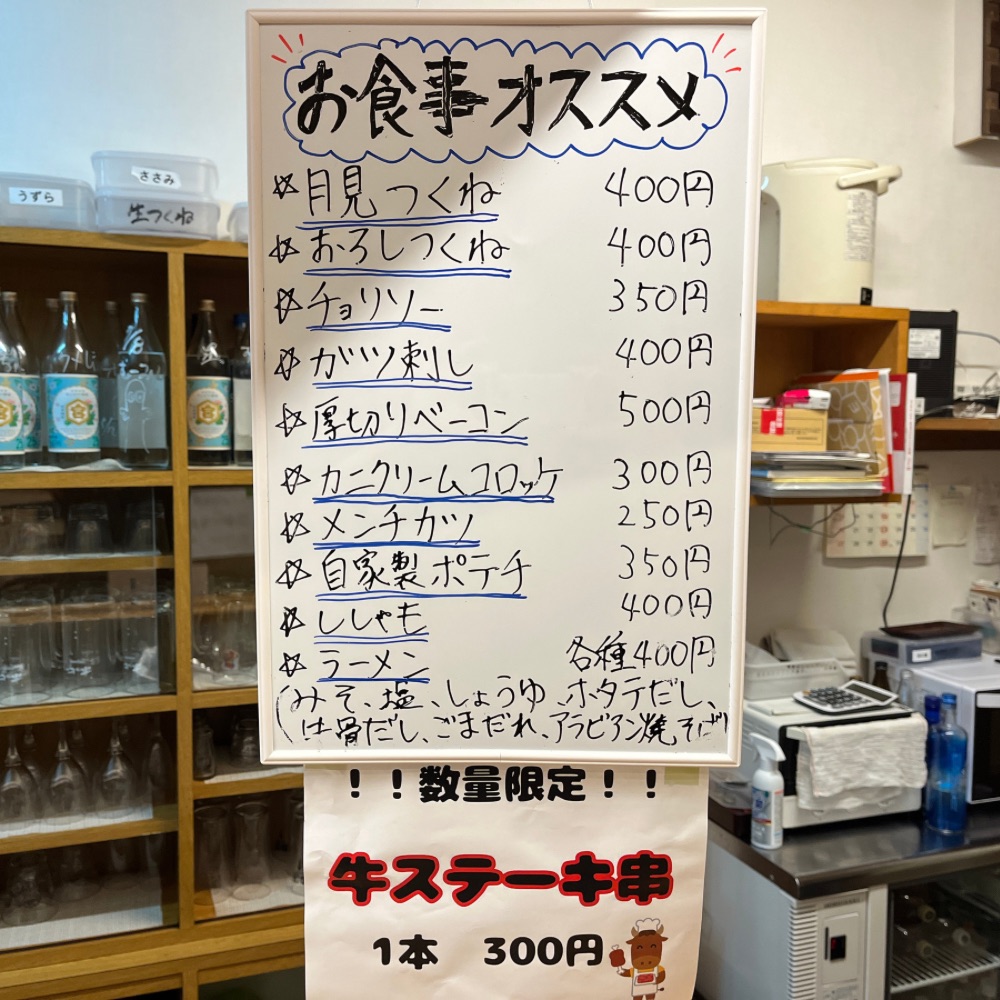 お食事オススメ
☆月見つくね 400円
☆おろしつくね 400円
☆チョリソー 350円
☆ガツ刺し 400円
☆厚切りベーコン 500円
☆カニクリームコロッケ 300円
☆メンチカツ 250円
☆自家製ポテチ 350円
☆ししゃも 400円
☆ラーメン 各種400円
(みそ、塩、しょうゆ、ホタテだし、
牛骨だし、ごまだれ、アラビアン焼そば)
！！数量限定！！
牛ステーキ串
1本 300円
うずら
ささみ
生つくね